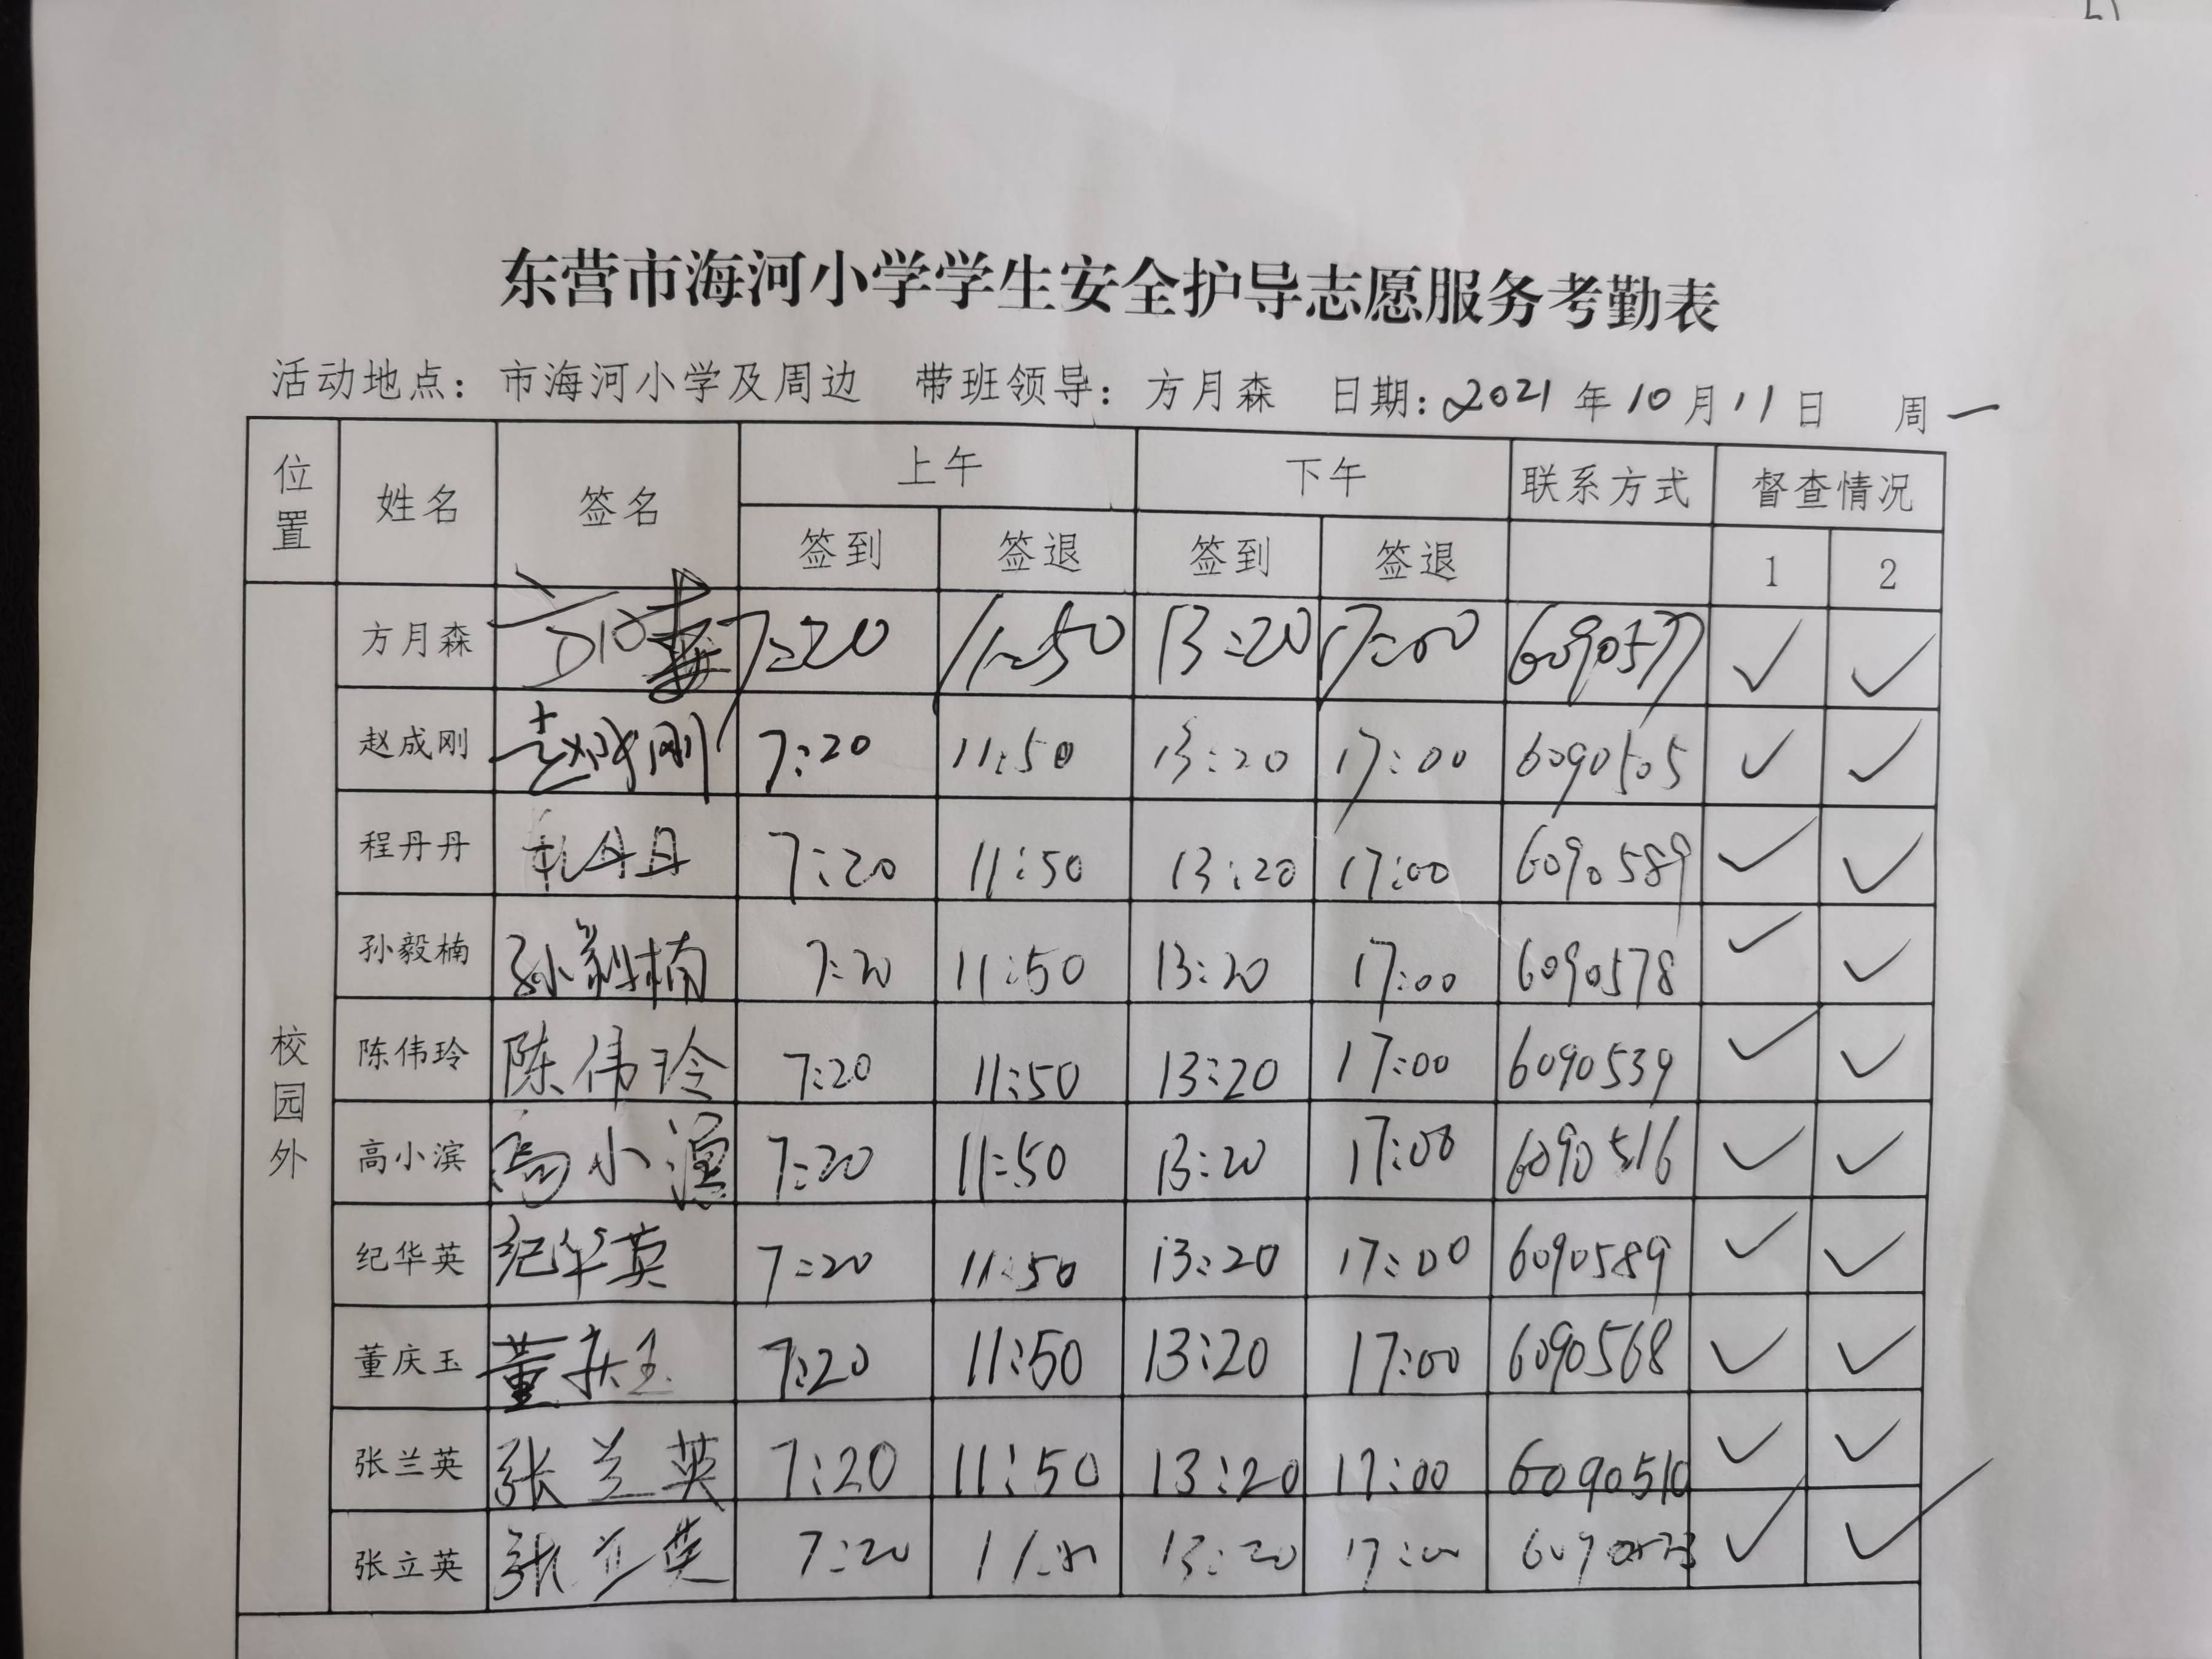 东营市海河小学学生安全护导志愿服务考勤表
活动地点：市海河小学及周边 带班领导：方月森 日期：2021年10月11日 周一
位置 姓名 签名 上午 下午 联系方式 督查情况
签到 签退 签到 签退 1 2
校园外
方月森 7:20 11:50 13:20 17:00 6090577 ✓ ✓
赵成刚 赵成刚 7:20 11:50 13:20 17:00 6090505 ✓ ✓
程丹丹 程丹丹 7:20 11:50 13:20 17:00 6090589 ✓ ✓
孙毅楠 孙毅楠 7:20 11:50 13:20 17:00 6090578 ✓ ✓
陈伟玲 陈伟玲 7:20 11:50 13:20 17:00 6090539 ✓ ✓
高小滨 高小滨 7:20 11:50 13:20 17:00 6090516 ✓ ✓
纪华英 纪华英 7:20 11:50 13:20 17:00 6090589 ✓ ✓
董庆玉 董庆玉 7:20 11:50 13:20 17:00 6090568 ✓ ✓
张兰英 张兰英 7:20 11:50 13:20 17:00 6090510 ✓ ✓
张立英 张立英 7:20 13:20 17:00 ✓ ✓